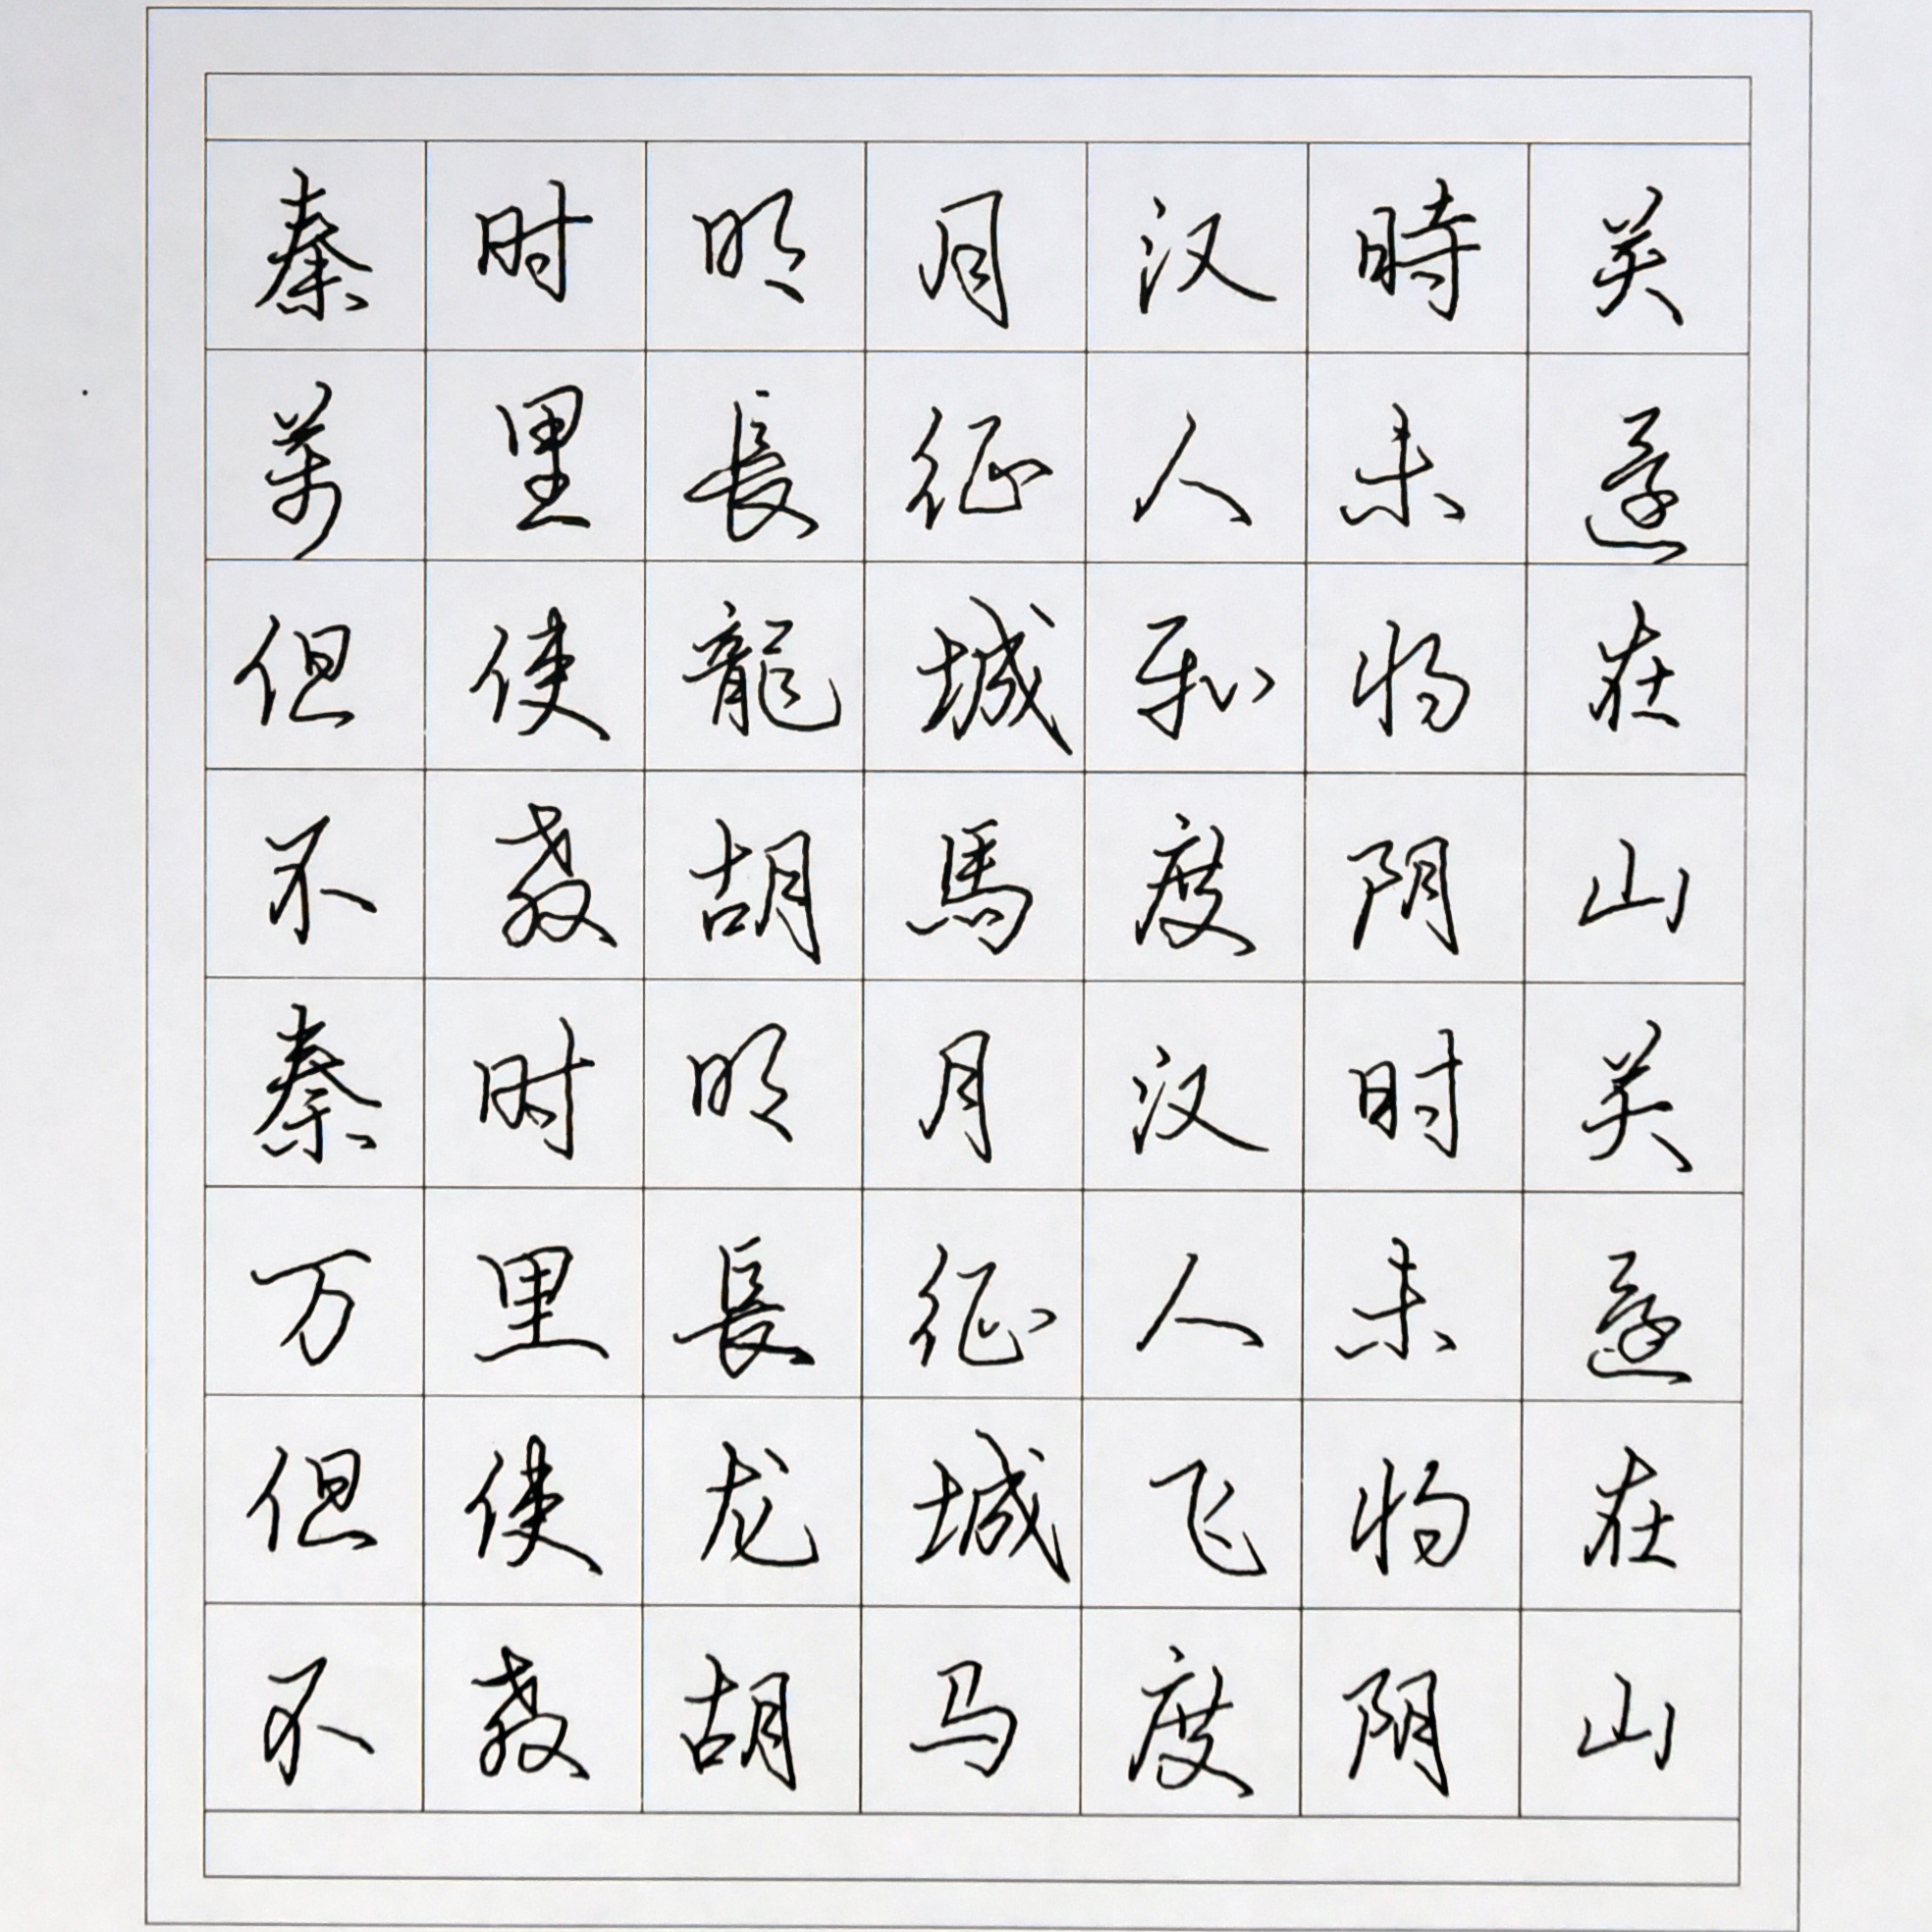 秦时明月汉時关
萬里長征人未还
但使龍城飛将在
不教胡馬度阴山
秦时明月汉时关
万里長征人未还
但使龙城飞将在
不教胡马度阴山